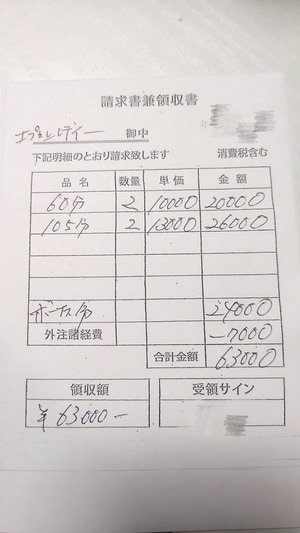 請求書兼領収書
御中
下記明細のとおり請求致します 消費税含む
品名 数量 単価 金額
60分 2 10000 20000
105分 2 13000 26000
ボーナス分 24000
外注諸経費 -7000
合計金額 63000
領収額 受領サイン
¥63000-